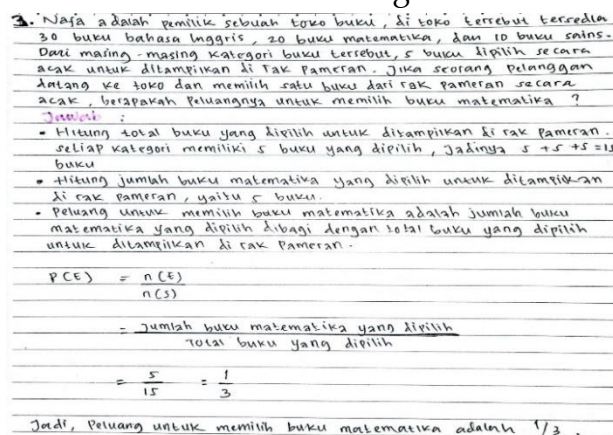 3. Nafa adalah pemilik sebuah toko buku, di toko tersebut tersedia
30 buku bahasa Inggris, 20 buku matematika, dan 10 buku sains.
Dari masing-masing kategori buku tersebut, 5 buku dipilih secara
acak untuk ditampilkan di rak pameran. Jika seorang pelanggan
datang ke toko dan memilih satu buku dari rak pameran secara
acak, berapakah peluangnya untuk memilih buku matematika ?
Jawab :
• Hitung total buku yang dipilih untuk ditampilkan di rak pameran.
setiap kategori memiliki 5 buku yang dipilih, jadinya 5 + 5 + 5 = 15
buku
• Hitung jumlah buku matematika yang dipilih untuk ditampilkan
di rak pameran, yaitu 5 buku.
• Peluang untuk memilih buku matematika adalah jumlah buku
matematika yang dipilih dibagi dengan total buku yang dipilih
untuk ditampilkan di rak pameran.
P(E) = n(E)
n(S)
= Jumlah buku matematika yang dipilih
Total buku yang dipilih
= 5 = 1
15 3
Jadi, Peluang untuk memilih buku matematika adalah 1/3.